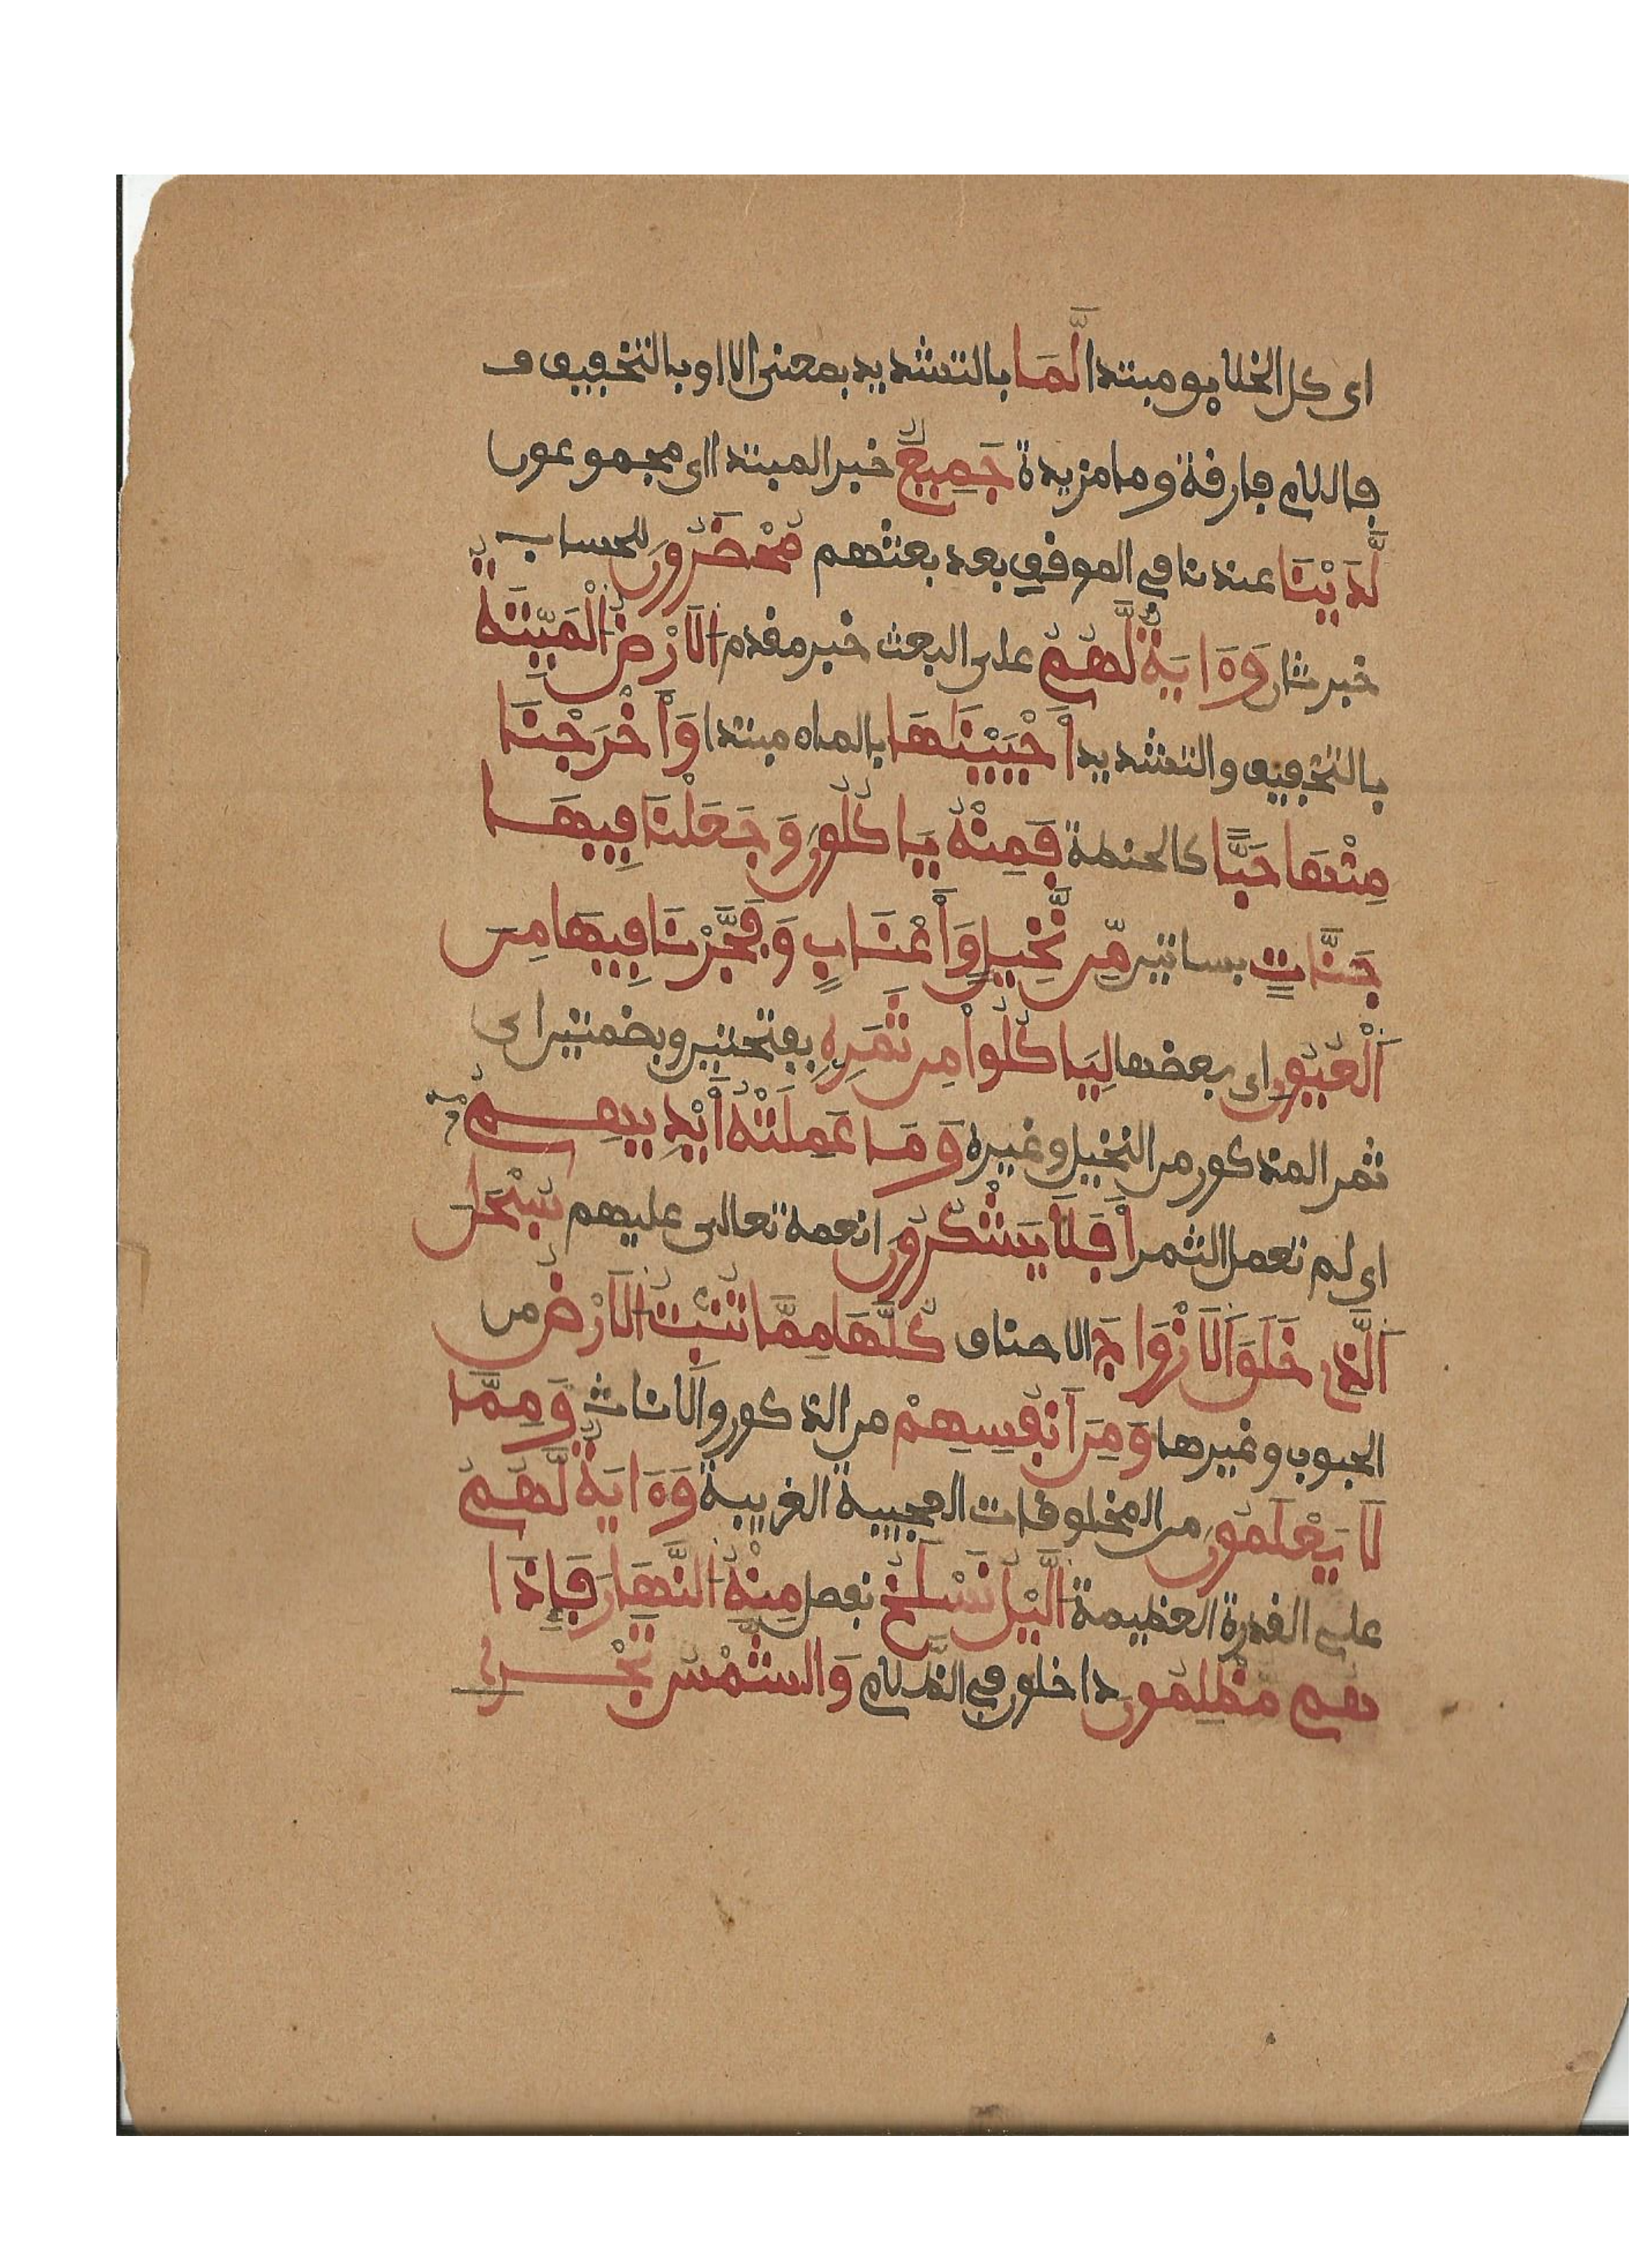 اى كل الخلايق مبتدا لَّمَا بالتشديد بمعنى الا او بالتخفيف ف
فاللام فارفة وما مزيدة جَمِيعٌ خبر المبتدا اى مجموعون
لَّدَيْنَا عندنا في الموفف بعد بعثهم مُحْضَرُونَ للحساب
خبر ثان وَءَايَةٌ لَّهُمُ على البعث خبر مفدم اَلَارْضُ الْمَيِّتَةُ
بالتخفيف والتشديد أَحْيَيْنَاهَا بالماء مبتدا وَأَخْرَجْنَا
مِنْهَا حَبًّا كالحنطة فَمِنْهُ يَاكُلُونَ وَجَعَلْنَا فِيهَا
جَنَّاتٍ بساتين مِّن نَّخِيلٍ وَأَعْنَابٍ وَفَجَّرْنَا فِيهَا مِنَ
اَلْعُيُونِ اى بعضها لِيَاكُلُواْ مِن ثَمَرِهِ بفتحتين وبضمتين اى
ثمر المذكور من النخيل وغيره وَمَا عَمِلَتْهُ أَيْدِيهِمُ
اى لم تعمل الثمر أَفَلَا يَشْكُرُونَ انعمه تعالى عليهم سُبْحَانَ
اَلَّذِى خَلَقَ اَلَازْوَاجَ الاصناف كُلَّهَا مِمَّا تُنۢبِتُ اُلَارْضُ من
الحبوب وغيرها وَمِنَ اَنفُسِهِمْ من الذكور والاناث وَمِمَّا
لَا يَعْلَمُونَ من المخلوفات العجيبة الغريبة وَءَايَةٌ لَّهُمُ
على الفدرة العظيمة اُلَّيْلُ نَسْلَخُ نفصل مِنْهُ اُلنَّهَارَ فَإِذَا
هُم مُّظْلِمُونَ داخلون في الظلام وَالشَّمْسُ تَجْرِى